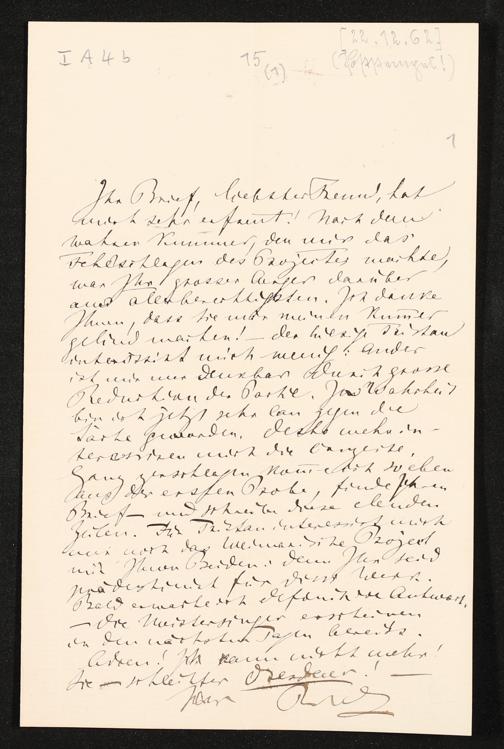 I A 4 b
15
(1)
[22.12.62]
1
Ihr Brief, liebster Freund, hat
mich sehr erfreut! Nach dem
wahren Kummer, den mir das
Fehlschlagen des Projectes machte,
war Ihr grosser Aerger darüber
am allerberechtigtesten. Ich danke
Ihnen, dass Sie mir meinen Kummer
gelind machen! — der hiesige Tristan
interessirt mich wenig: er
ist mir nur denkbar durch grosse
Reduction der Partie. In Wahrheit
bin ich jetzt sehr lau gegen die
Sache geworden. Desto mehr in-
teressiren mich die Concerte.
Ganz zerschlagen komm' ich so eben
aus der ersten Probe, finde Ihren
Brief — und schreibe diese elenden
Zeilen. Für Tristan interessirt mich
nur noch das Weimarische Project
mit Ihnen Beiden: denn Ihr seid
prädestinirt für diess Werk.
Bald erwarte ich definitive Antwort.
— Die Meistersinger erscheinen
in den nächsten Tagen bereits.
Adieu! Ich kann nicht mehr!
Sie — schlechter Dresdener! —
Ihr